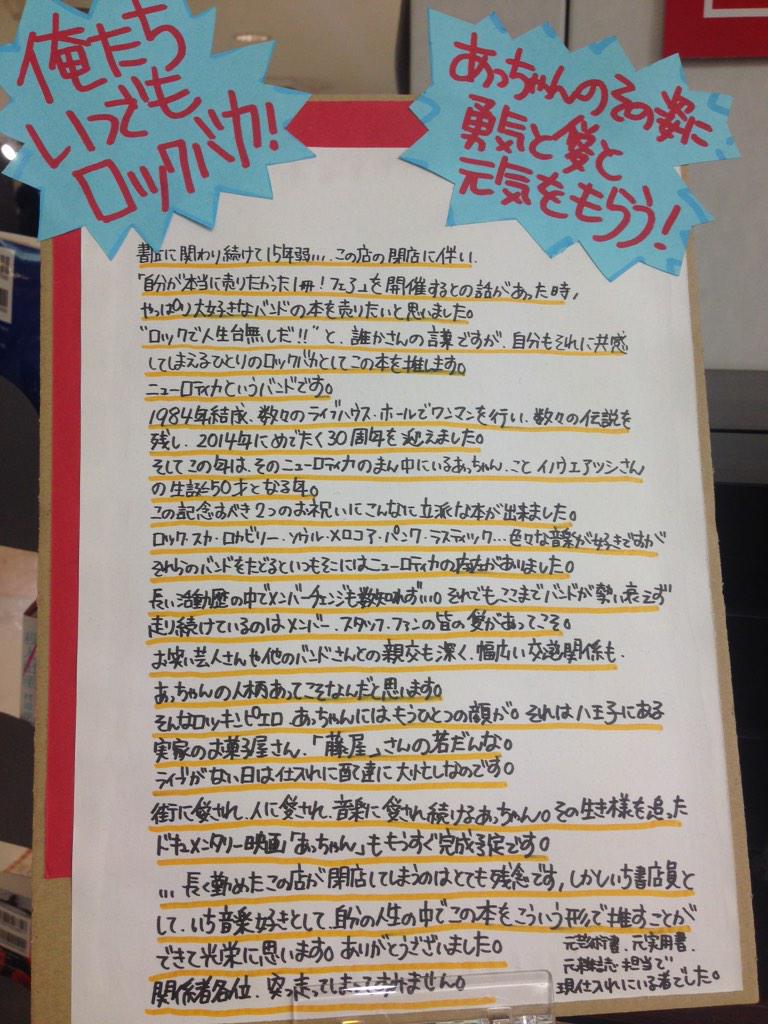 俺たち
いつでも
ロックバカ!
あっちゃんのその姿に
勇気と愛と
元気をもらう!
書店に関わり続けて15年弱… この店の閉店に伴い、
「自分が本当に売りたかった1冊!フェア」を開催するとの話があった時、
やっぱり大好きなバンドの本を売りたいと思いました。
"ロックで人生台無しだ!!"と、誰かさんの言葉ですが、自分もそれに共感
してしまえるひとりのロックバカとしてこの本を推します。
ニューロティカというバンドです。
1984年結成、数々のライブハウス・ホールでワンマンを行い、数々の伝説を
残し、2014年にめでたく30周年を迎えました。
そしてこの年は、そのニューロティカのまん中にいるあっちゃん、こと イノウエアツシさん
の生誕50才となる年。
この記念すべき2つのお祝いにこんなに立派な本が出来ました。
ロック・スカ・ロカビリー・ソウル・メロコア・パンク・ラスティック…色々な音楽が好きですが
それらのバンドをたどるといつもそこにはニューロティカの存在がありました。
長い活動歴の中でメンバーチェンジも数知れず…。それでもここまでバンドが勢い衰えず
走り続けているのはメンバー、スタッフ、ファンの皆の愛があってこそ。
お笑い芸人さんや他のバンドさんとの親交も深く、幅広い交遊関係も、
あっちゃんの人柄あってこそなんだと思います。
そんなロッキンピエロ あっちゃんにはもうひとつの顔が。それは八王子にある
実家のお菓子屋さん、「藤屋」さんの若だんな。
ライブがない日は仕入れに配達に大忙しなのです。
街に愛され、人に愛され、音楽に愛され続けるあっちゃん。その生き様を追った
ドキュメンタリー映画「あっちゃん」ももうすぐ完成予定です。
… 長く勤めたこの店が閉店してしまうのはとても残念です、しかしいち書店員と
して、いち音楽好きとして、自分の人生の中でこの本をこういう形で推すことが
できて光栄に思います。ありがとうございました。
関係者各位、突っ走ってしまってすみません。
元芸術書、元実用書、
元雑誌担当で
現仕入れにいる者でした。